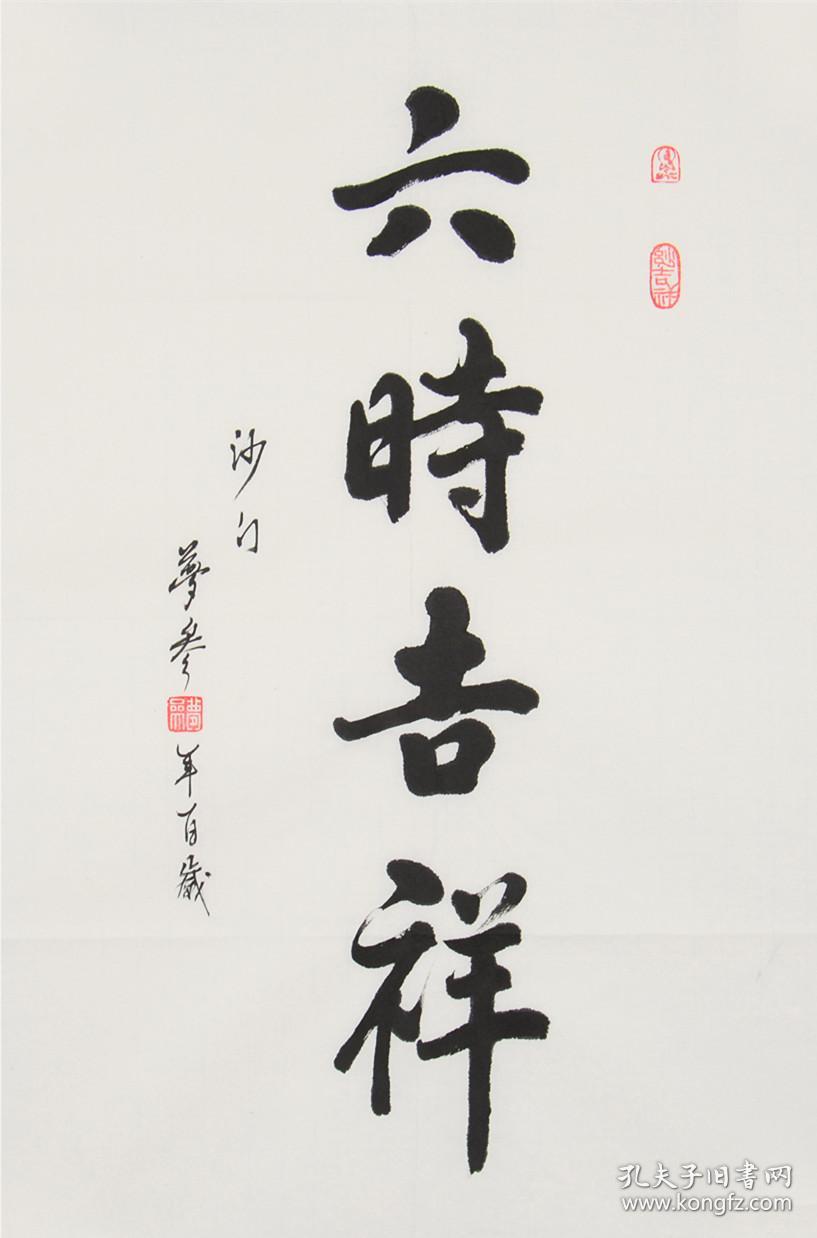 六時吉祥
妙吉祥
沙门
夢參
年百歲
孔夫子旧书网
www.kongfz.com